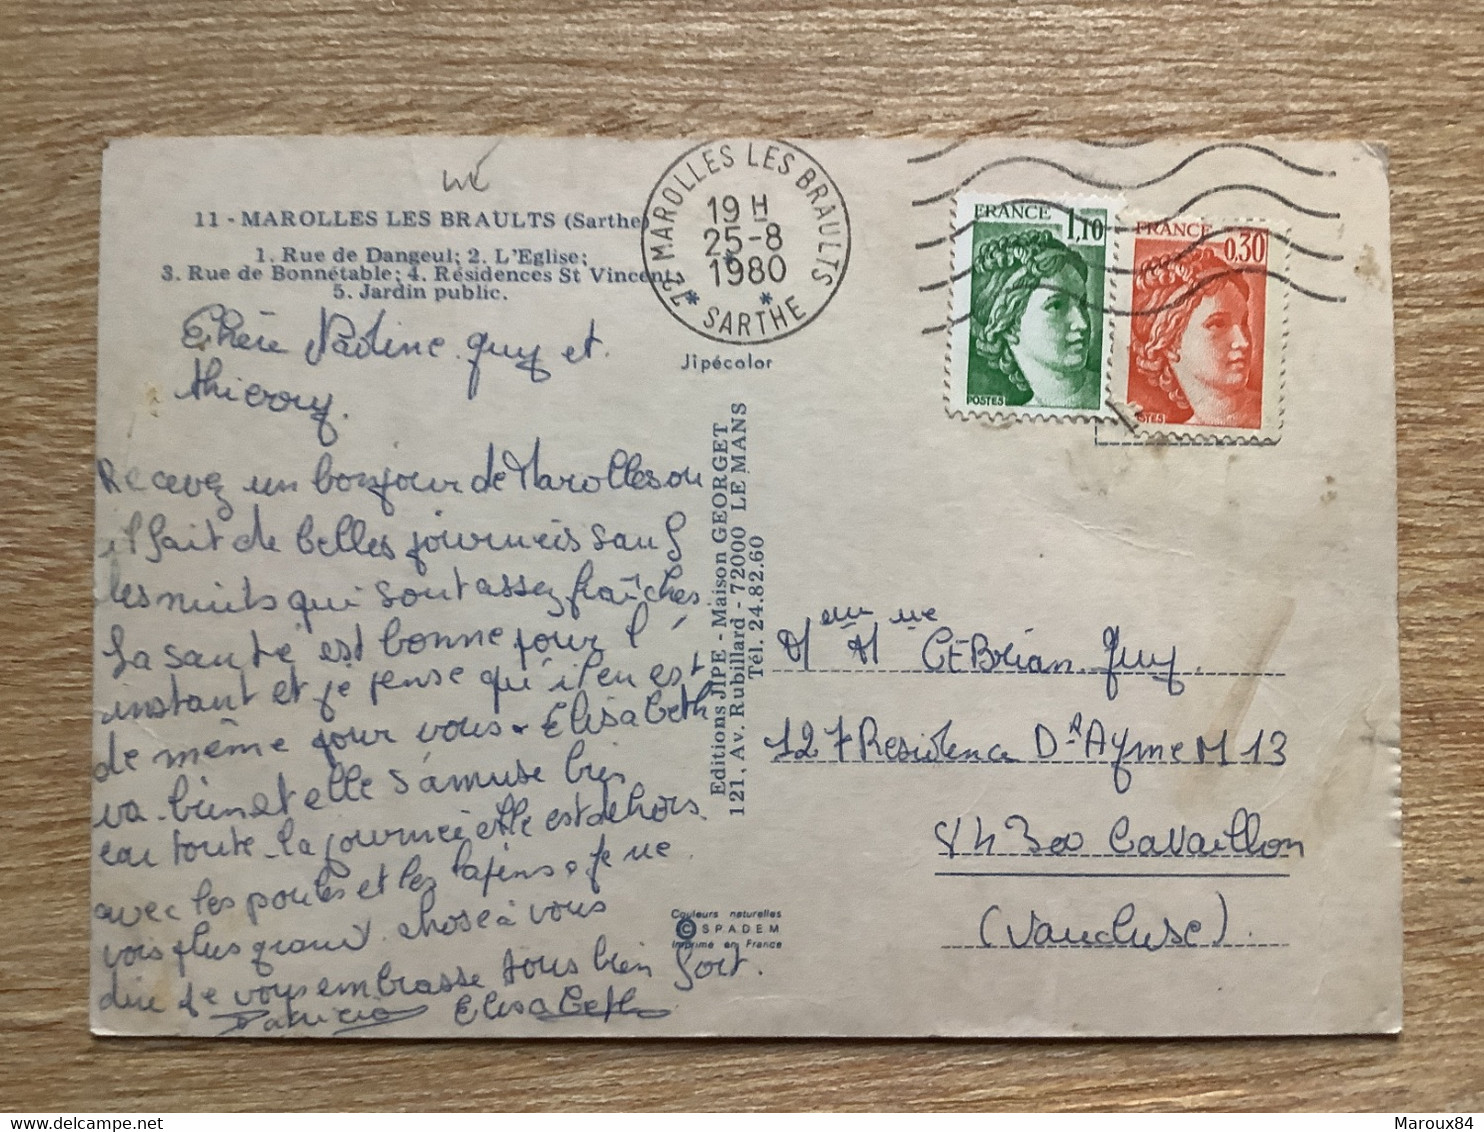 11 - MAROLLES LES BRAULTS (Sarthe)
1. Rue de Dangeul; 2. L'Eglise;
3. Rue de Bonnétable; 4. Résidences St Vincent;
5. Jardin public.
72 MAROLLES LES BRAULTS
19 H
25-8
1980
* SARTHE *
FRANCE 1,10
POSTES
FRANCE 0,30
POSTES
Jipécolor
Chère Nadine Guy et
thierry.
Recevez un bonjour de Marolles ou
il fait de belles journeés sauf
les nuits qui sont assez fraîches
La santé est bonne pour l'
instant et je pense qu'il en est
de même pour vous. Elisabeth
va bien et elle s'amuse bien
car toute la journeé elle est dehors
avec les poules et les lapins. Je ne
vois plus grand chose à vous
dire Je vous embrasse tous bien fort.
Patricia Elisabeth
Editions JIPE - Maison GEORGET
121, Av. Rubillard - 72000 LE MANS
Tél. 24.82.60
Couleurs naturelles
© SPADEM
Imprimé en France
M eur M me CEBRian Guy.
127 Residence Dr Ayme M 13
84300 Cavaillon
(Vaucluse).
Maroux84